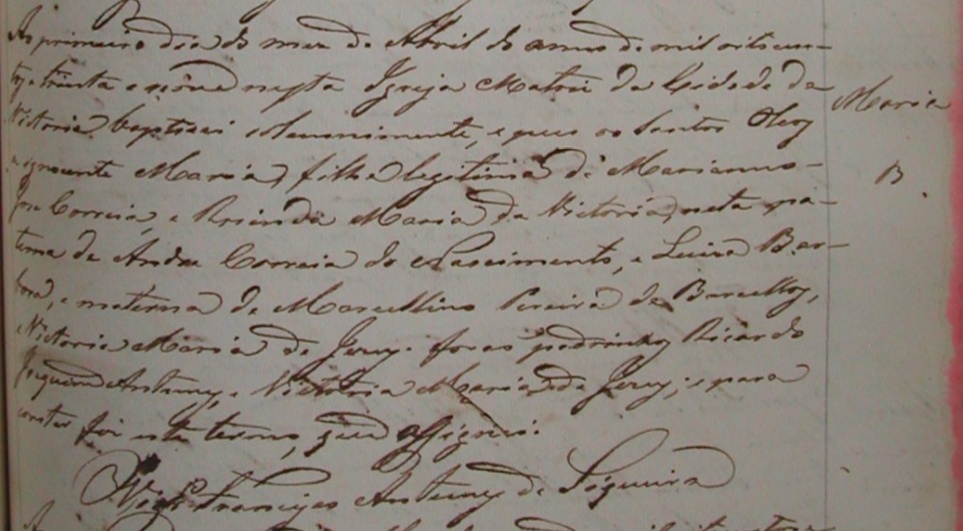 Ao primeiro dia do mez de Abril do anno de mil oitocen-
tos e trinta e nove nesta Igreja Matriz da Cidade da
Victoria baptisei solemnemente, e puz os Santos Oleos
a ignocente Maria, filha legitima de Marianno
Jose Correia, e Rosinda Maria da Victoria, neta pa-
terna de Andre Correia do Nascimento, e Luiza Bar-
boza, e materna de Marcellino Pereira de Barcellos,
e Victoria Maria de Jesus. forão padrinhos Ricardo
Joaquim Antunes, e Victoria Maria de Jesus; e para
constar fiz este termo, que assignei.
Vigr.º Francisco Antunes de Siqueira
Maria
B.